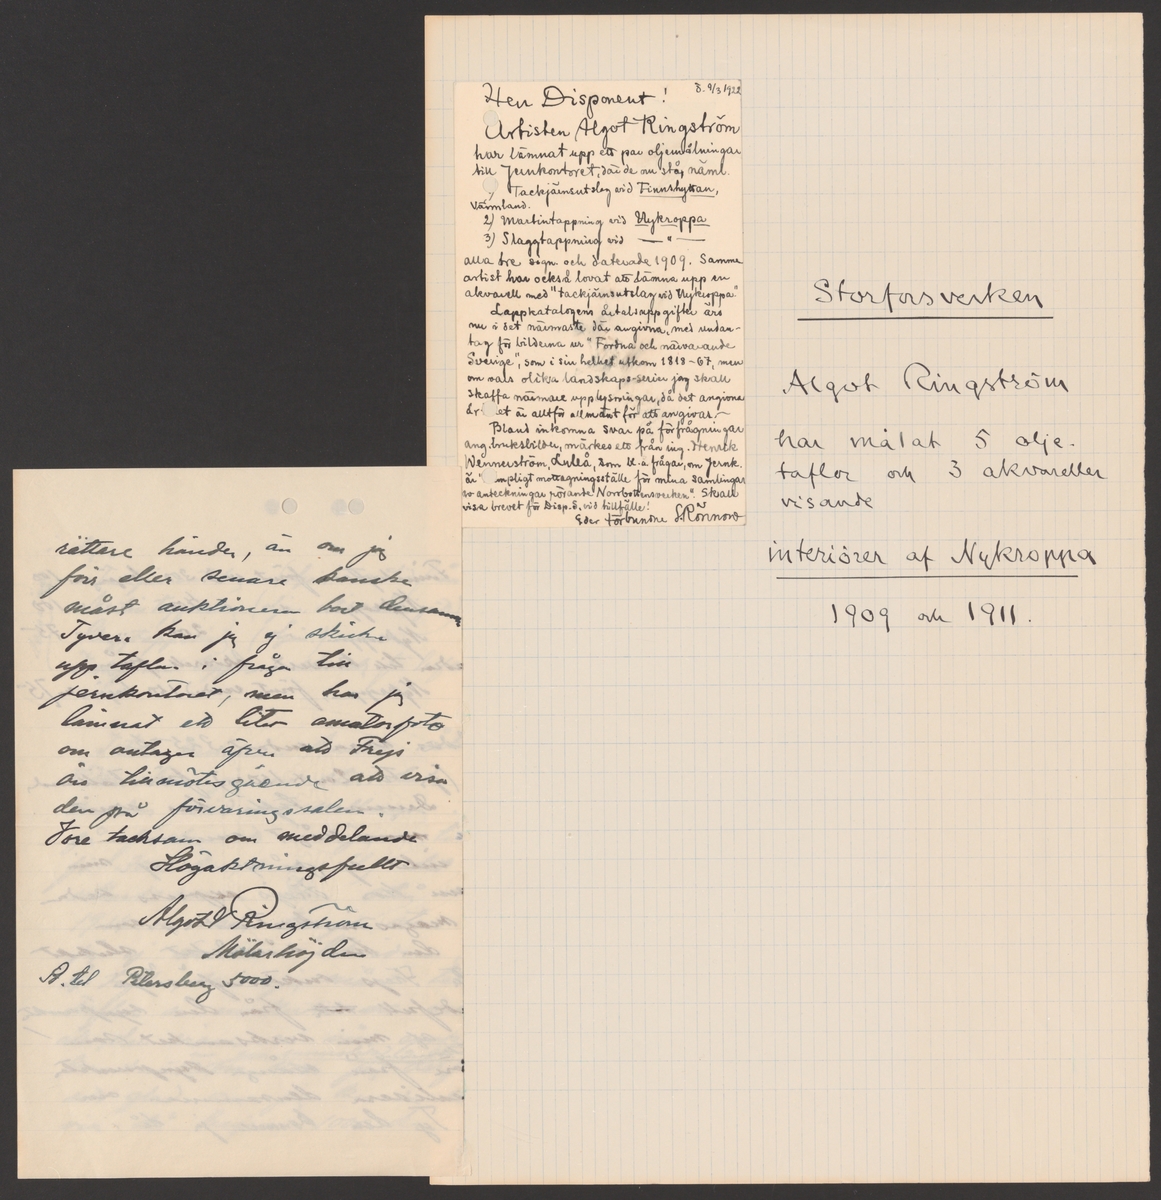 S. 9/3 1922
Herr Disponent!
Artisten Algot Ringström
har lämnat upp ett par oljemålningar
till Jernkontoret, där de nu stå, näml.
1) Tackjärnsutslag vid Finnshyttan,
Värmland.
2) Martintappning vid Nykroppa
3) Slaggtappning vid — " —
alla tre sign. och daterade 1909. Samme
artist har också lovat att lämna upp en
akvarell med "tackjärnsutslag vid Nykroppa"
Lappkatalogens årtalsuppgifter äro
nu i det närmaste där angivna, med undan-
tag för bilderna ur "Fordna och närvarande
Sverige", som i sin helhet utkom 1818-67, men
om vars olika landskaps-serier jag skall
skaffa närmare upplysningar, då det angivna
et är alltför allmänt för att angivas.—
Bland inkomna svar på förfrågningar
ang. bruksbilder, märkes ett från ing. Henrik
Wennerström, Luleå, som bl.a. frågar, om Jernk.
är mpligt mottagningsställe för mina samlingar
av anteckningar rörande Norrbottensverken". Skall
visa brevet för Disp. S. vid tillfälle!
Eder förbundne S. Rönnow
Storforsverken
Algot Ringström
har målat 5 olje-
taflor och 3 akvareller
visande
interiörer af Nykroppa
1909 och 1911.
rättare händer, än om jag
förr eller senare kanske
måst auktionera bort densamma
Tyvärr kan jag ej skicka
upp taflan i fråga till
jernkontoret, men har jag
lämnat ett litet amatörfoto
om antager äfven att Frejs
äro tillmötesgående att visa
den på förvaringssalen.
Vore tacksam om meddelande
Högaktningsfullt
Algot Ringström
Mälarhöjden
A. tel Petersberg 5000.